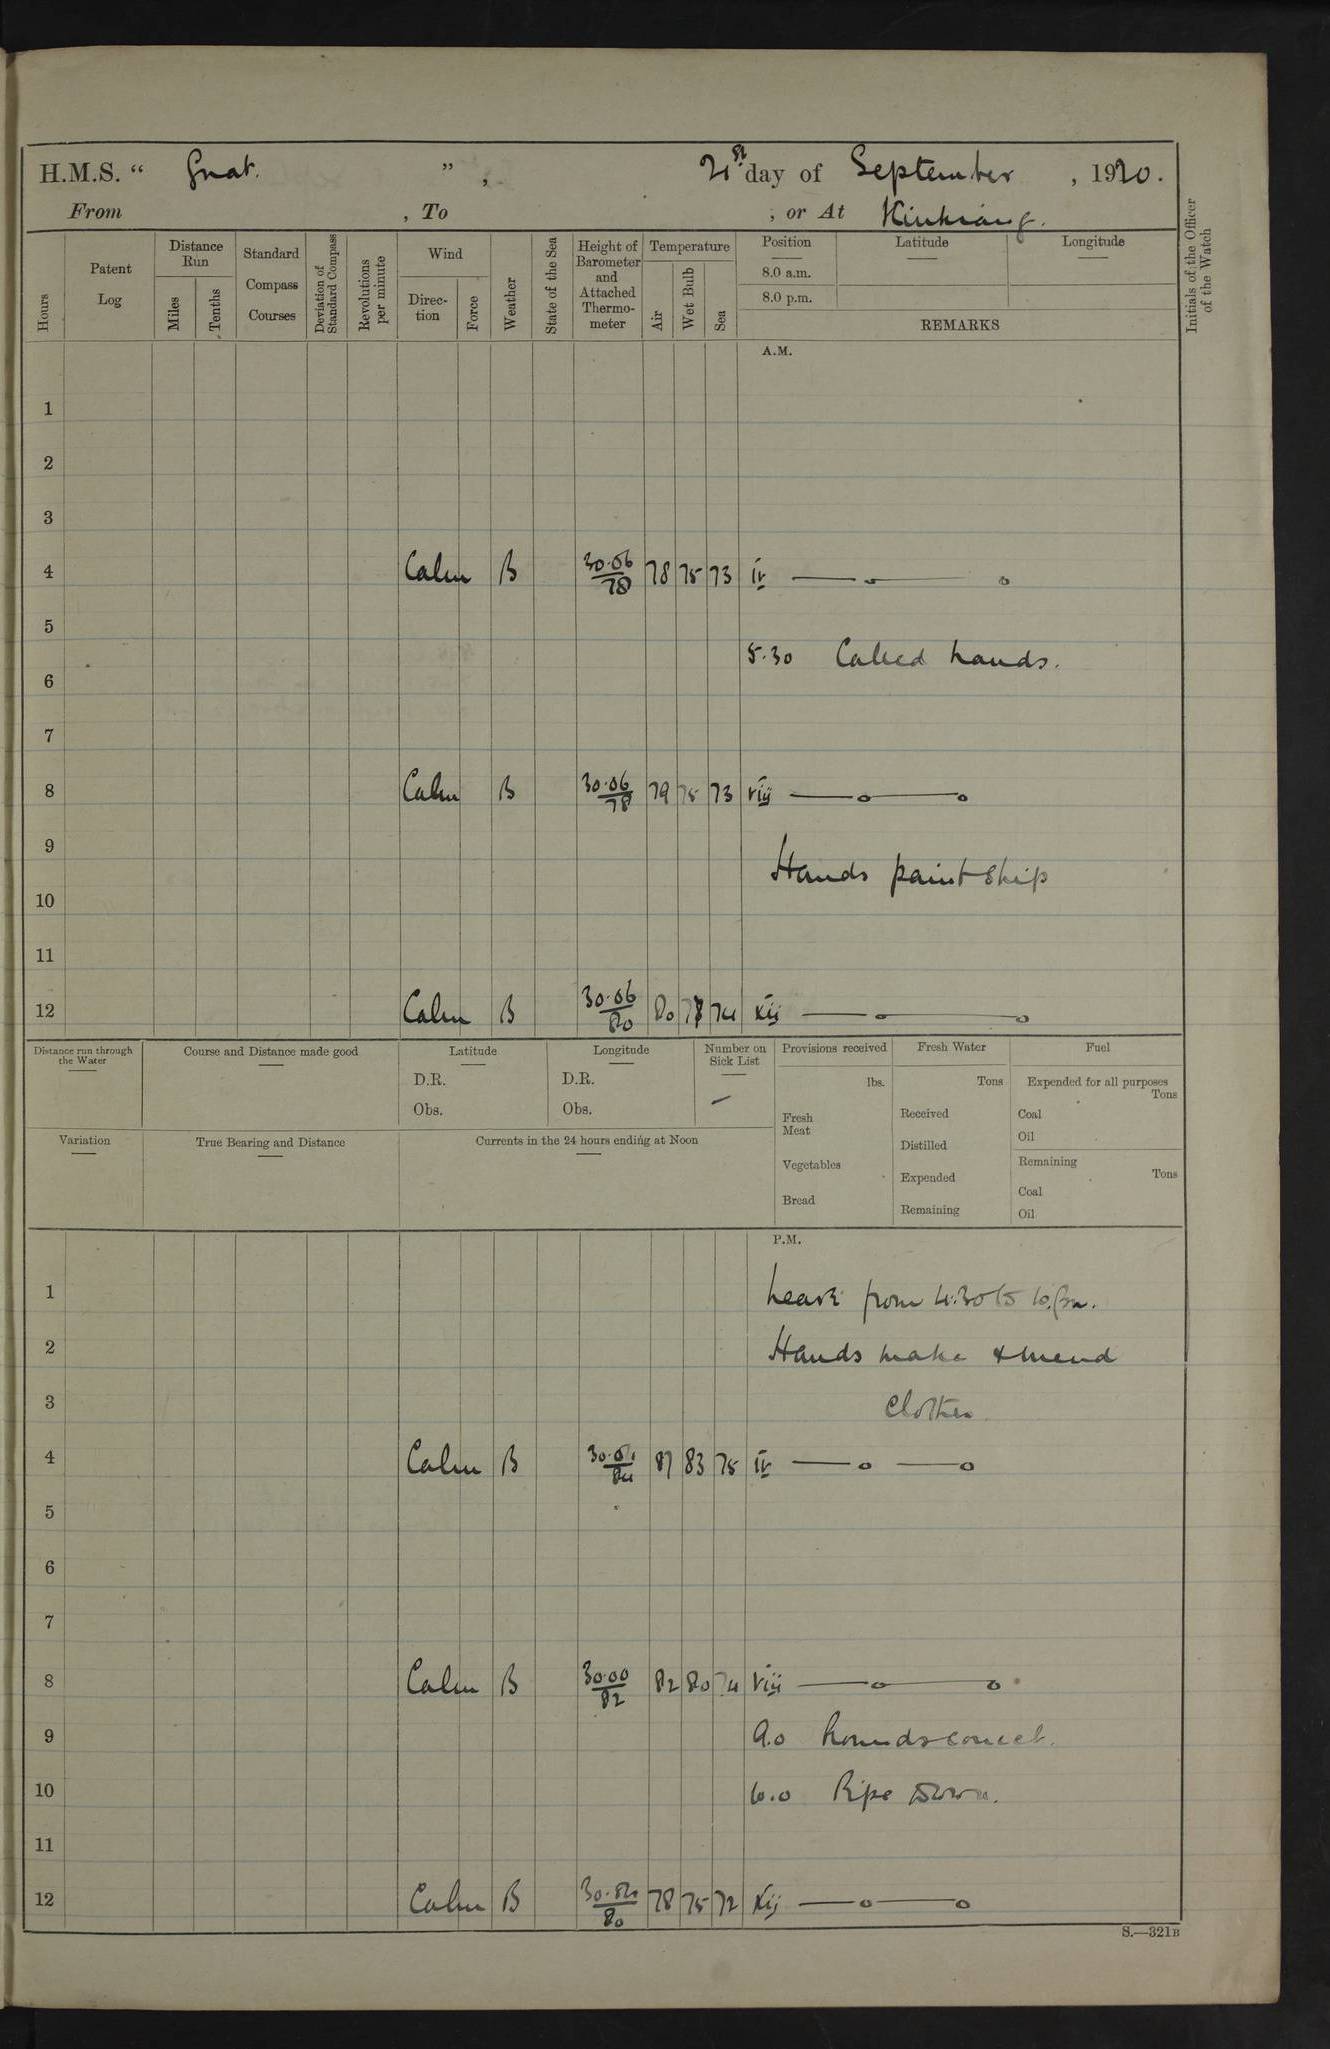 H.M.S. “ Gnat. ” , 21st day of September , 1920.
From , To , or At Kiukiang.
Hours
Patent Log
Distance Run
Miles
Tenths
Standard Compass Courses
Deviation of Standard Compass
Revolutions per minute
Wind
Direction
Force
Weather
State of the Sea
Height of Barometer and Attached Thermometer
Temperature
Air
Wet Bulb
Sea
Position
8.0 a.m.
8.0 p.m.
Latitude
Longitude
REMARKS
Initials of the Officer of the Watch
A.M.
1
2
3
4 Calm B 30.06/78 78 75 73 IV
5
5.30 Called hands.
6
7
8 Calm B 30.06/78 79 75 73 VIII
9
Hands paint ship
10
11
12 Calm B 30.06/80 80 74 XII
Distance run through the Water
Course and Distance made good
Latitude
D.R.
Obs.
Longitude
D.R.
Obs.
Number on Sick List
Provisions received
lbs.
Fresh Meat
Vegetables
Bread
Fresh Water
Tons
Received
Distilled
Expended
Remaining
Fuel
Expended for all purposes
Tons
Coal
Oil
Remaining
Tons
Coal
Oil
Variation
True Bearing and Distance
Currents in the 24 hours ending at Noon
P.M.
1 Leave from 4.30 to 10.pm.
2 Hands make & mend
3 Clothes
4 Calm B 87 83 75 IV
5
6
7
8 Calm B 30.00/82 82 80 74 VIII
9 9.0 Rounds correct.
10 10.0 Pipe down.
11
12 Calm B 78 75 72 XII
S.—321B